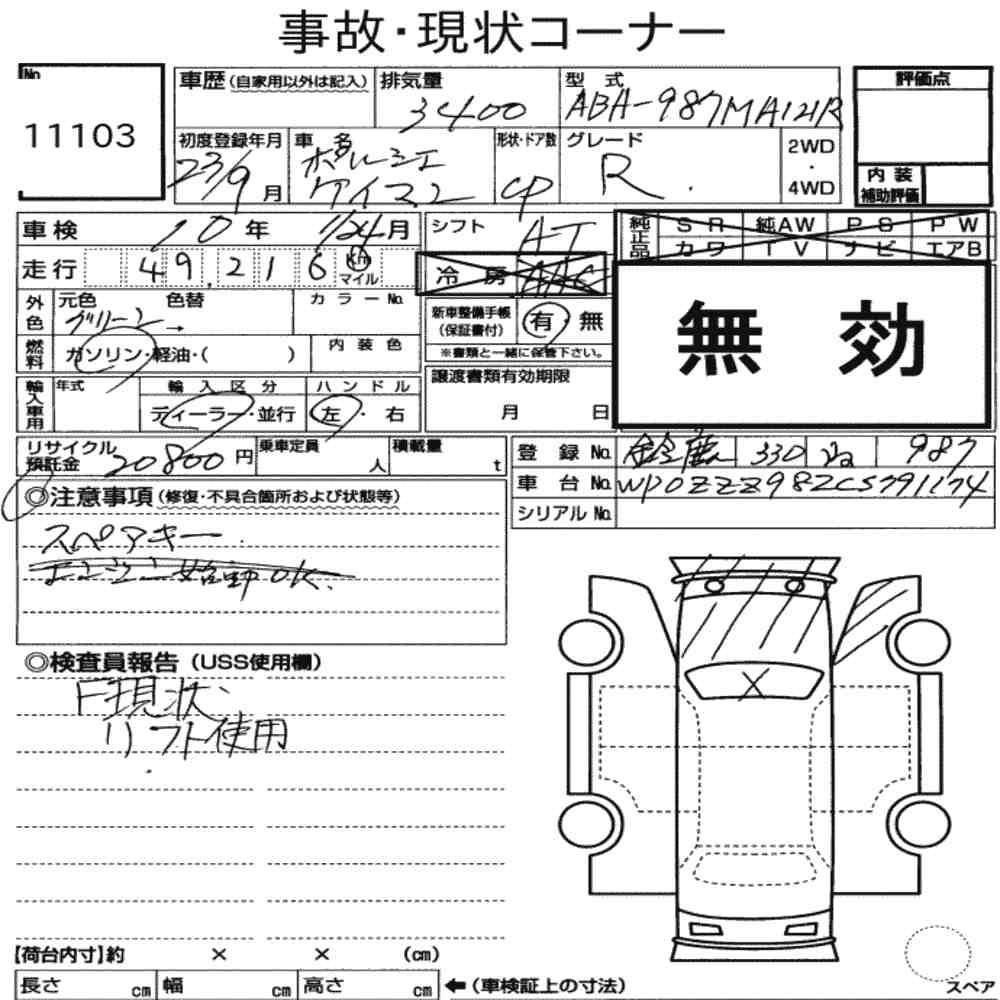 事故・現状コーナー
No 11103
車歴(自家用以外は記入) 排気量 3400 型式 ABA-987MA121R
評価点
初度登録年月 23/9月 車名 ポルシェ ケイマン 形状・ドア数 CP グレード R. 2WD・4WD
内装補助評価
車検 10年 1/24月 シフト AT
純正品 SR 純AW PS PW
カワ TV ナビ エアB
走行 49,216 Km マイル 冷房 AAC
無効
外色 元色 グリーン → 色替 カラーNo.
新車整備手帳(保証書付) 有・無
※書類と一緒に保管下さい。
燃料 ガソリン・軽油・( ) 内装色
輸入車用 年式 輸入区分 ディーラー・並行 ハンドル 左・右
譲渡書類有効期限
月 日
リサイクル預託金 20800円 乗車定員 人 積載量 t
登録No. 鈴鹿 330 987
車台No. WP0ZZZ98ZCS791174
シリアルNo.
◎注意事項(修復・不具合箇所および状態等)
スペアキー
エンジン始動OK.
◎検査員報告(USS使用欄)
F現状、
リフト使用
X
【荷台内寸】約 × × (cm)
長さ cm 幅 cm 高さ cm ←(車検証上の寸法)
スペア